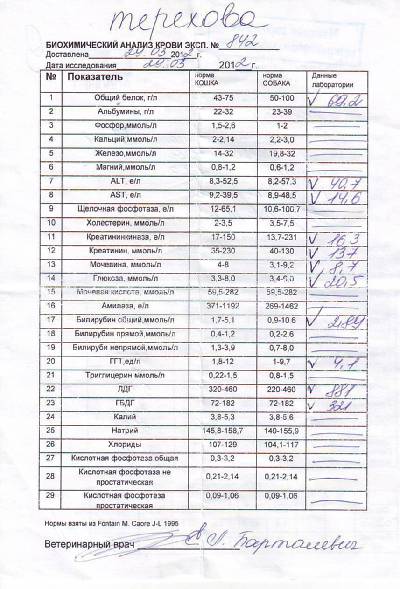 Терехова
БИОХИМИЧЕСКИЙ АНАЛИЗ КРОВИ ЭКСП. № 842
Доставлена 29.03 2012 г.
Дата исследования 29.03 2012 г.
№ Показатель норма КОШКА норма СОБАКА Данные лаборатории
1 Общий белок, г/л 43-75 50-100 69.2
2 Альбумины, г/л 22-32 23-39
3 Фосфор,ммоль/л 1,5-2,6 1-2
4 Кальций,ммоль/л 2-2,14 2,2-3,0
5 Железо,ммоль/л 14-32 19,8-32
6 Магний,ммоль/л 0,8-1,2 0,6-1,2
7 ALT, е/л 8,3-52,5 8,2-57,3 40,7
8 AST, е/л 9,2-39,5 8,9-48,5 14,6
9 Щелочная фосфотаза, е/л 12-65,1 10,6-100,7
10 Холестерин, ммоль/л 2-3,5 3,5-7,5
11 Креатининкиназа, е/л 17-150 13,7-231 16,3
12 Креатинин, ммоль/л 35-230 40-130 137
13 Мочевина, ммоль/л 4-8 3,1-9,2 8,7
14 Глюкоза, ммоль/л 3,3-8,0 3,4-6,0 20,5
15 Мочевая кислота, ммоль/л 59,5-282 59,5-282
16 Амилаза, е/л 371-1192 269-1462
17 Билирубин общий,ммоль/л 1,7-5,1 0,9-10,6 2,89
18 Билирубин прямой,ммоль/л 0,4-1,2 0,2-2,6
19 Билируби непрямой,ммоль/л 1,3-3,9 0,7-8,0
20 ГГТ,ед/л 1,8-12 1-9,7 4,1
21 Триглицерин ммоль/л 0,22-1,5 0,8-1,5
22 ЛДГ 320-460 220-460 881
23 ГБДГ 72-182 72-182 321
24 Калий 3,8-5,3 3,8-5,6
25 Натрий 145,8-158,7 140-155,9
26 Хлориды 107-129 104,1-117
27 Кислотная фосфотаза общая 0,3-3,2 0,3-3,2
28 Кислотная фосфотаза не простатическая 0,21-2,14 0,21-2,14
29 Кислотная фосфотеза простатическая 0,09-1,06 0,09-1,06
Нормы взяты из Fontain M. Caore J-L 1995
Ветеринарный врач